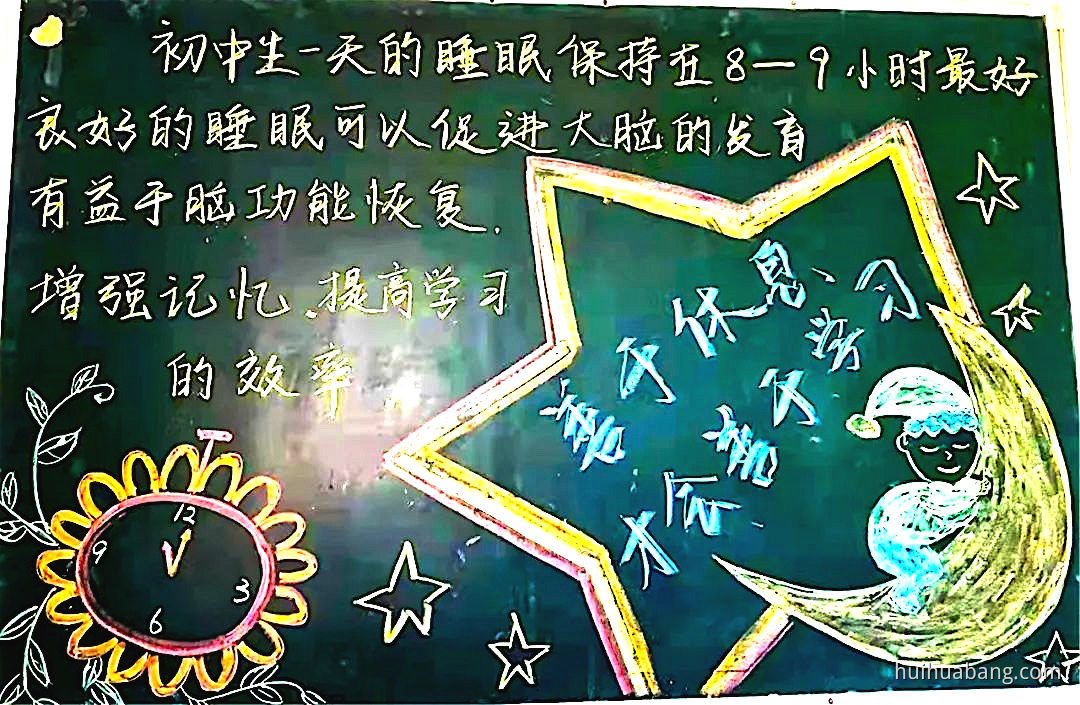 初中生一天的睡眠保持在8—9小时最好
良好的睡眠可以促进大脑的发育
有益于脑功能恢复.
增强记忆.提高学习
的效率
善于休息、
才会善于学习
12
9
3
6
huihuabang.com